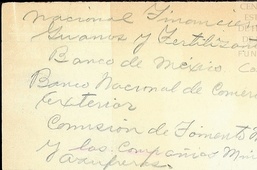 Nacional Financie
Guanos y Fertiliza
Banco de México
Banco Nacional de Comerci
Exterior
Comisión de Fomento M
y las Compañías Min
Azufreras